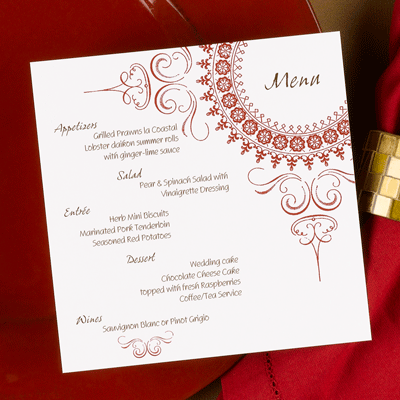 Menu
Appetizers
Grilled Prawns la Coastal
Lobster daikon summer rolls
with ginger-lime sauce
Salad
Pear & Spinach Salad with
Vinaigrette Dressing
Entrée
Herb Mini Biscuits
Marinated Pork Tenderloin
Seasoned Red Potatoes
Dessert
Wedding cake
Chocolate Cheese Cake
topped with fresh Raspberries
Coffee/Tea Service
Wines
Sauvignon Blanc or Pinot Grigio